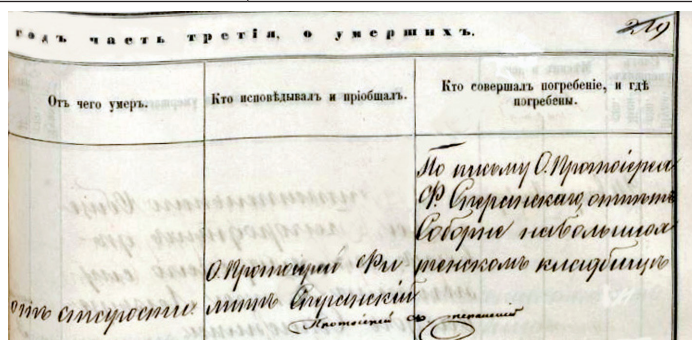 годъ часть третія, о умершихъ.
Отъ чего умеръ.
Кто исповѣдывалъ и пріобщалъ.
Кто совершалъ погребеніе, и гдѣ
погребены.
отъ старости
О. Протоіерей Фи
литъ Сперанскій
Протоіерей Ф.
По письму О. Протоіерея
Ф. Сперанскаго, отпѣтъ
Соборне на Больше
кладбищѣ